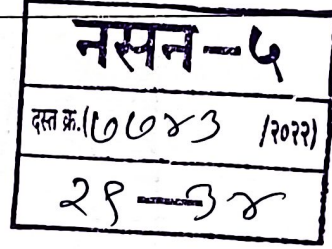 नसन-५
दस्त क्र.(७७४३ /२०२२)
२९-३४